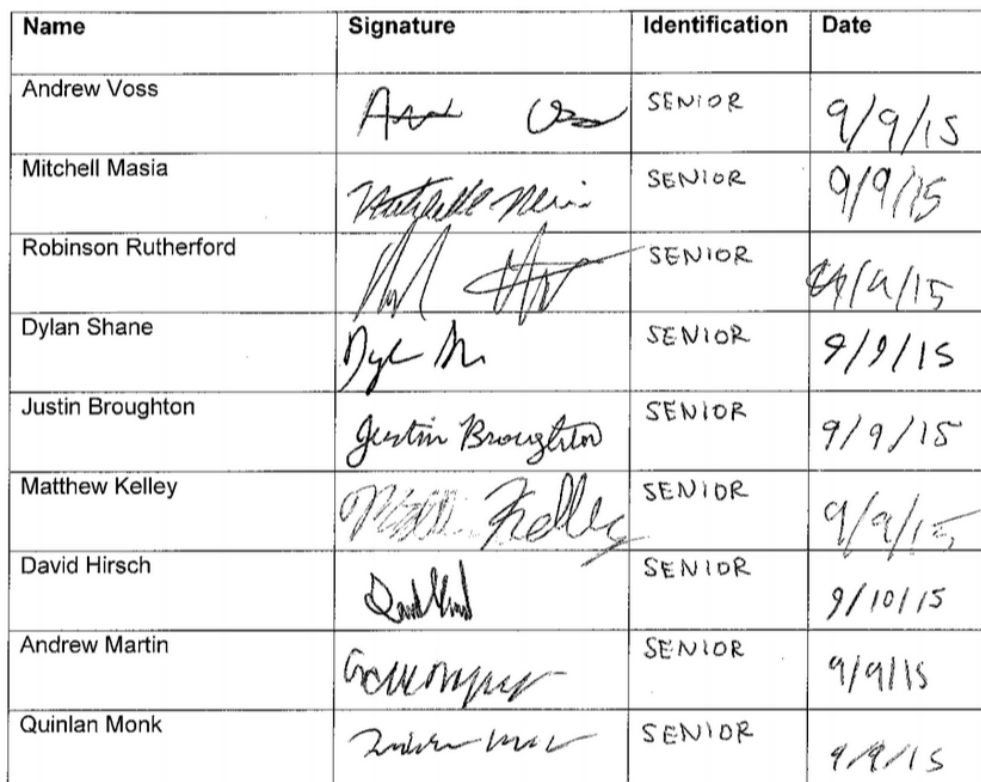 Name Signature Identification Date
Andrew Voss SENIOR 9/9/15
Mitchell Masia SENIOR 9/9/15
Robinson Rutherford SENIOR 9/9/15
Dylan Shane SENIOR 9/9/15
Justin Broughton Justin Broughton SENIOR 9/9/15
Matthew Kelley Matt Kelley SENIOR 9/9/15
David Hirsch SENIOR 9/10/15
Andrew Martin SENIOR 9/9/15
Quinlan Monk SENIOR 9/9/15